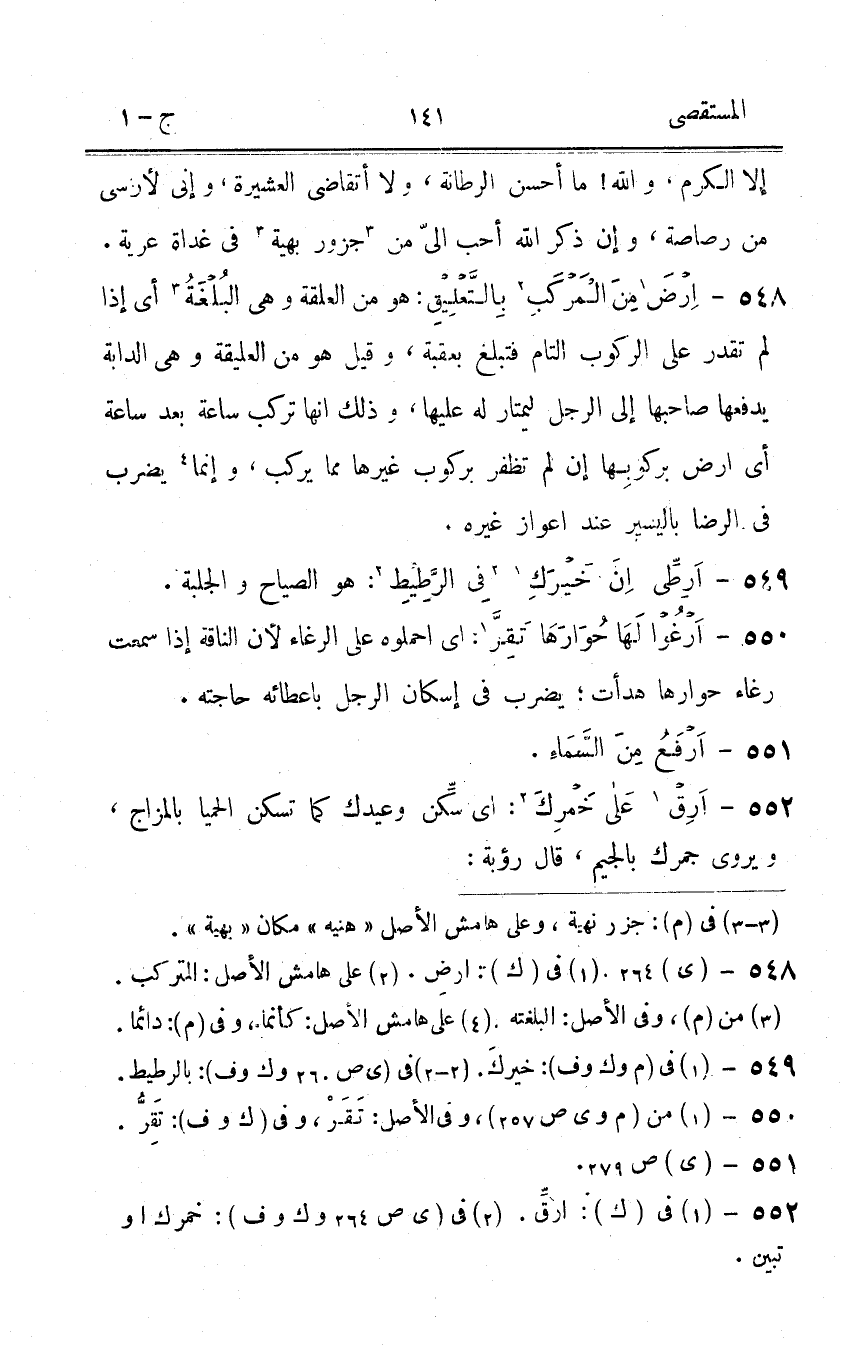 المستقصى ١٤١ ج – ١
إلا الكرم ، و الله! ما أحسن الرطانة ، و لا أتقاضى العشيرة ، و إنى لأرسى
من رصاصة ، و إن ذكر الله أحب الىّ من ٣جزور بهية٣ فى غداة عرية .
٥٤٨ – اِرْضَ١ مِنَ الْمَرْكَبِ٢ بِالتَّعْلِيْقِ: هو من العلقة و هى البُلْغَةُ٣ أى إذا
لم تقدر على الركوب التام فتبلغ بعقبة ، و قيل هو من العليقة و هى الدابة
يدفعها صاحبها إلى الرجل ليمتار له عليها ، و ذلك انها تركب ساعة بعد ساعة
أى ارض بركوبها إن لم تظفر بركوب غيرها مما يركب ، و إنما٤ يضرب
فى الرضا باليسير عند اعواز غيره .
٥٤٩ – اَرِطِّى اِنَّ خَيْرَكِ١ ٢فِى الرَّطِيْطِ٢: هو الصياح و الجلبة .
٥٥٠ – اَرْغُوْا لَهَا حُوَارَهَا تَقِرَّ١: اى احملوه على الرغاء لأن الناقة إذا سمعت
رغاء حوارها هدأت ؛ يضرب فى إسكان الرجل باعطائه حاجته .
٥٥١ – اَرْفَعُ مِنَ السَّمَاءِ .
٥٥٢ – اَرِقْ١ عَلٰى خَمْرِكَ٢: اى سكِّن وعيدك كما تسكن الحميا بالمزاج ،
و يروى جمرك بالجيم ، قال رؤبة :
(٣–٣) فى (م): جزر نهية ، وعلى هامش الأصل « هنيه » مكان « بهية » .
٥٤٨ – (ى) ٢٦٤ .(١) فى (ك): ارضِ . (٢) على هامش الأصل: المتركب .
(٣) من (م)، وفى الأصل: البلغته .(٤) على هامش الأصل: كأنما، و فى (م): دائما .
٥٤٩ – (١) فى (م وك وف): خيركَ. (٢–٢)فى (ى ص ٢٦٠ وك وف): بالرطيط.
٥٥٠ – (١) من (م و ى ص ٢٥٧)، و فى الأصل: تَقَرْ ، و فى (ك و ف): تَقَرُّ .
٥٥١ – (ى) ص ٢٧٩.
٥٥٢ – (١) فى (ك): ارقِّ . (٢) فى (ى ص ٢٦٤ و ك و ف): خمرك او
تبين .